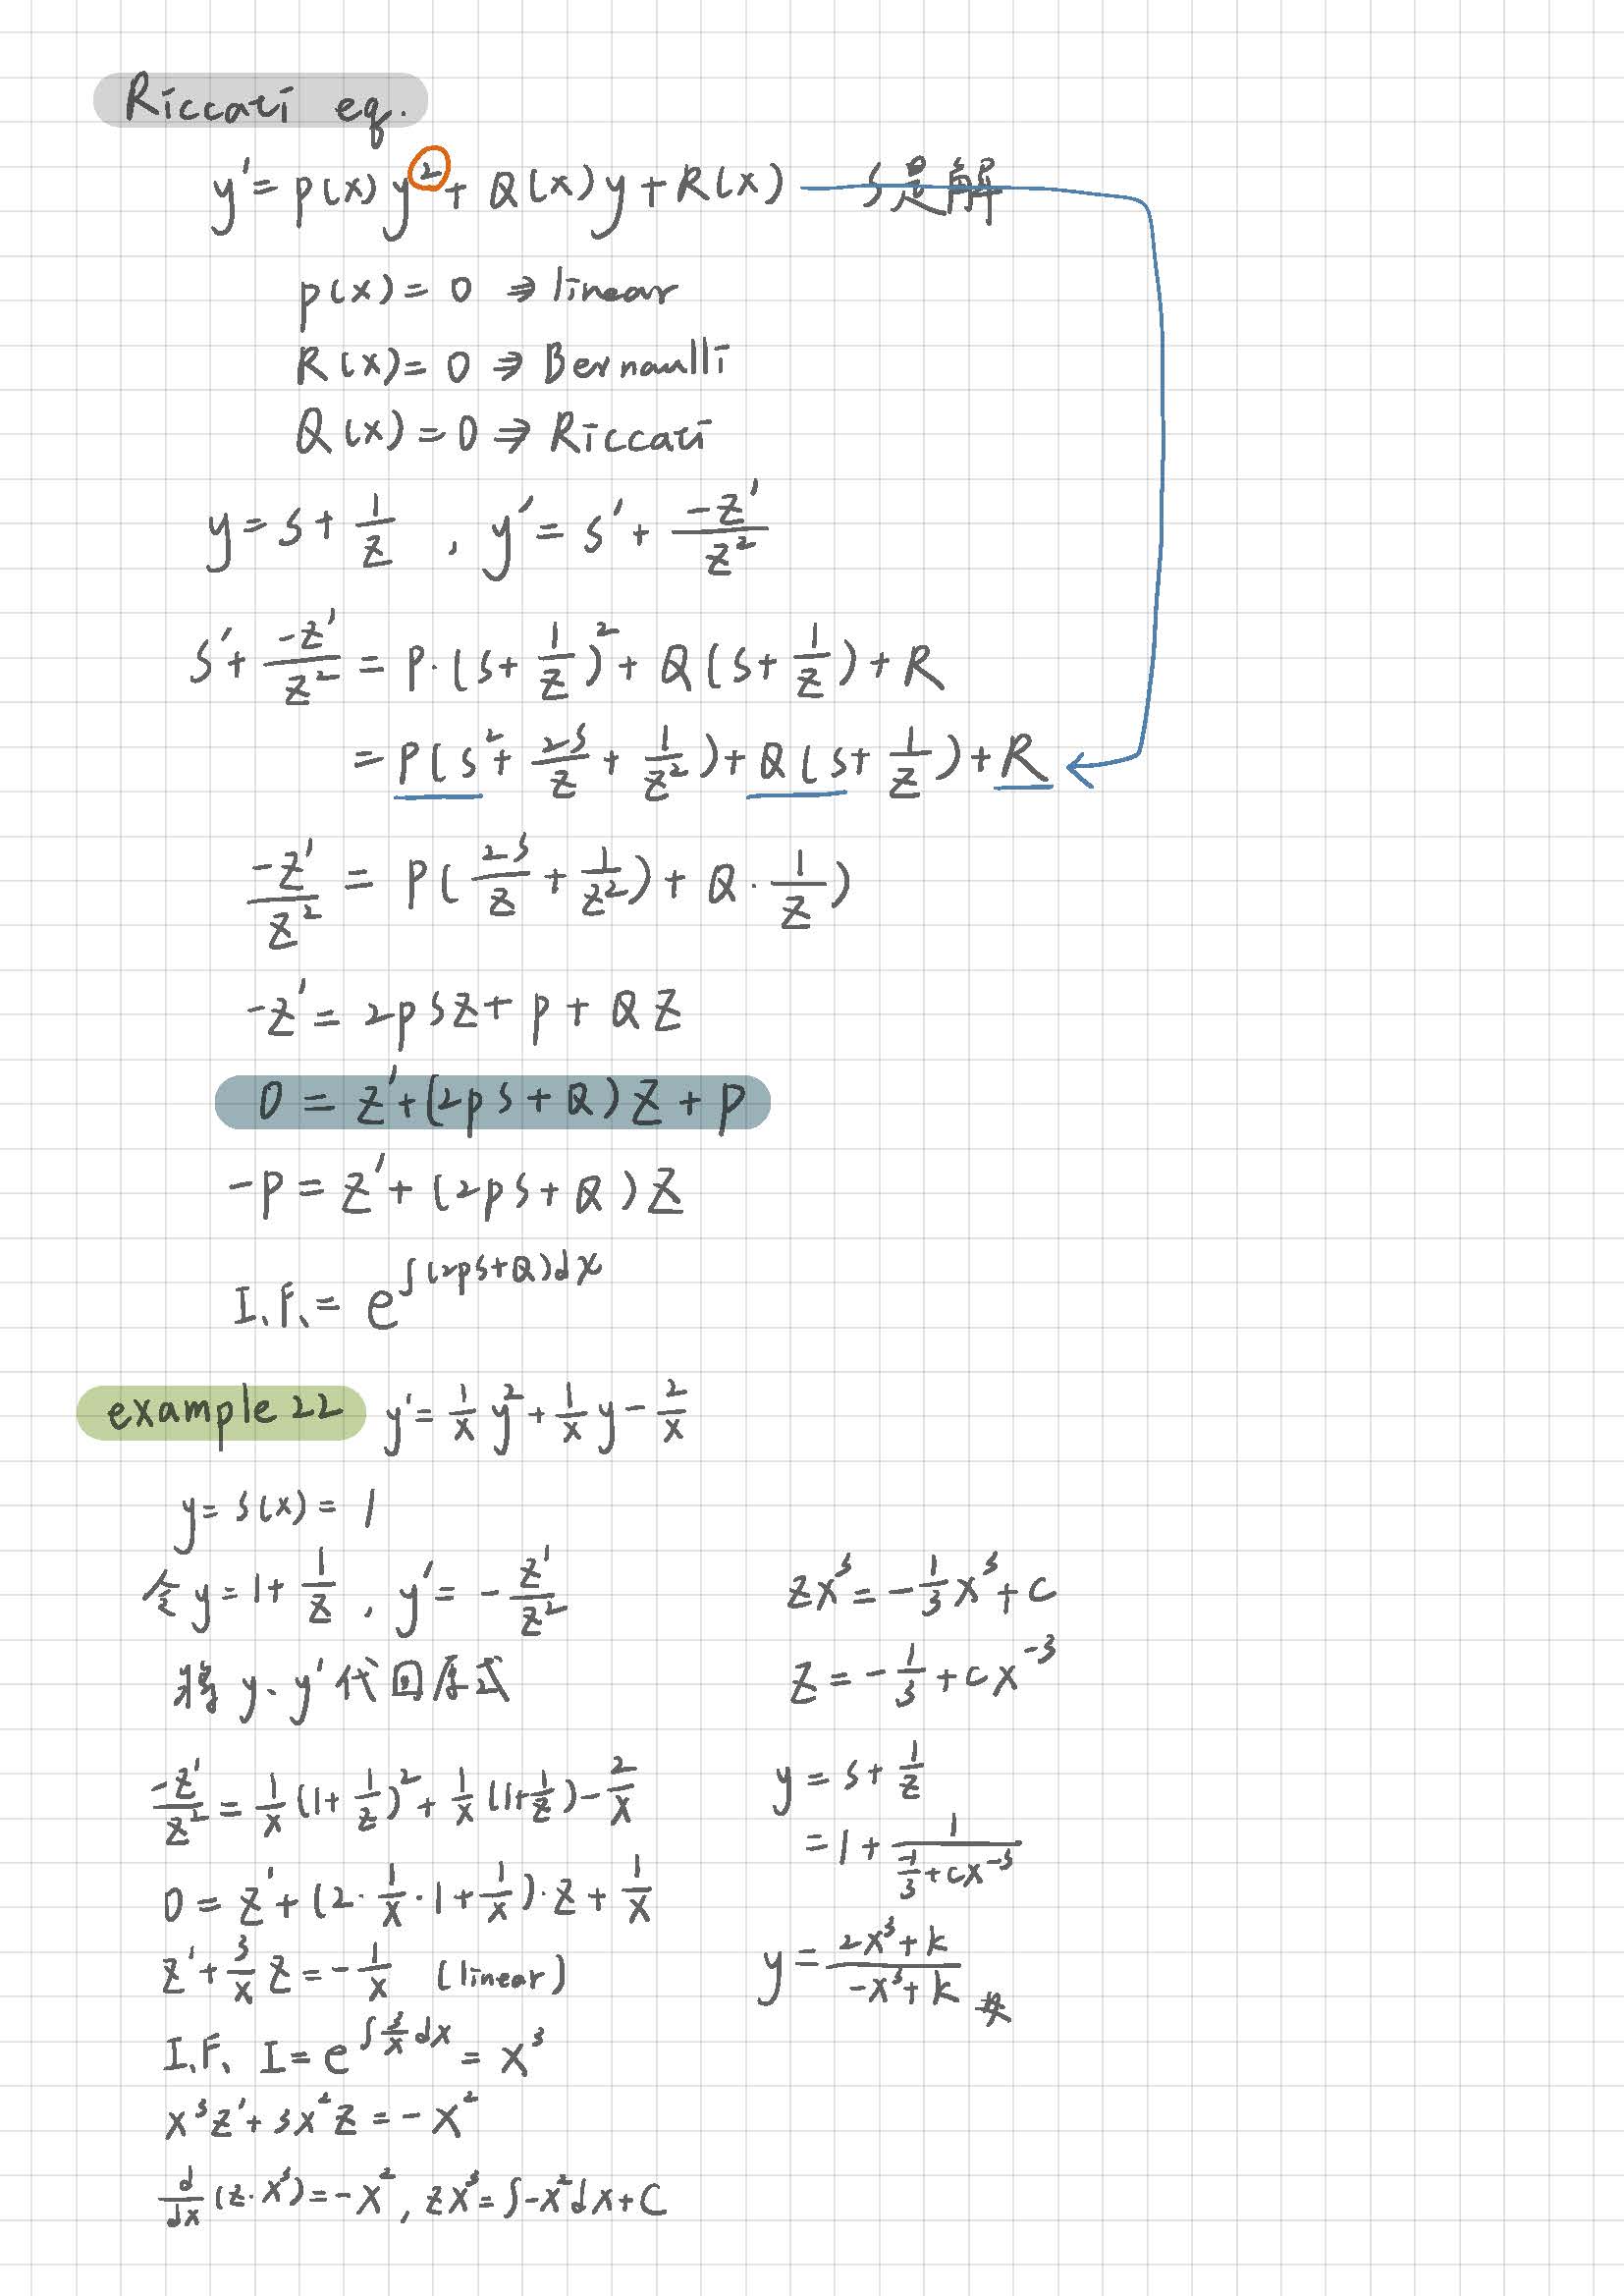 Riccati eq.
y' = p(x)y² + Q(x)y + R(x) s是解
p(x) = 0 ⇒ linear
R(x) = 0 ⇒ Bernaulli
Q(x) = 0 ⇒ Riccati
y = s + 1/z , y' = s' + -z'/z²
s' + -z'/z² = P·(s + 1/z)² + Q(s + 1/z) + R
= P(s² + 2s/z + 1/z²) + Q(s + 1/z) + R
-z'/z² = P(2s/z + 1/z²) + Q · 1/z)
-z' = 2psz + p + Qz
0 = z' + (2ps + Q)z + p
-p = z' + (2ps + Q)z
I.F. = e^∫(2ps+Q)dx
example 22 y' = 1/x y² + 1/x y - 2/x
y = s(x) = 1
令 y = 1 + 1/z , y' = - z'/z²
將 y、y' 代回原式
-z'/z² = 1/x (1 + 1/z)² + 1/x (1 + 1/z) - 2/x
0 = z' + (2 · 1/x · 1 + 1/x) · z + 1/x
z' + 3/x z = - 1/x (linear)
I.F. I = e^∫3/x dx = x³
x³z' + 3x²z = -x²
d/dx (z·x³) = -x², zx³ = ∫-x²dx + C
zx³ = - 1/3 x³ + c
z = - 1/3 + cx⁻³
y = s + 1/z
= 1 + 1/(-1/3 + cx⁻³)
y = (2x³ + k)/(-x³ + k) #